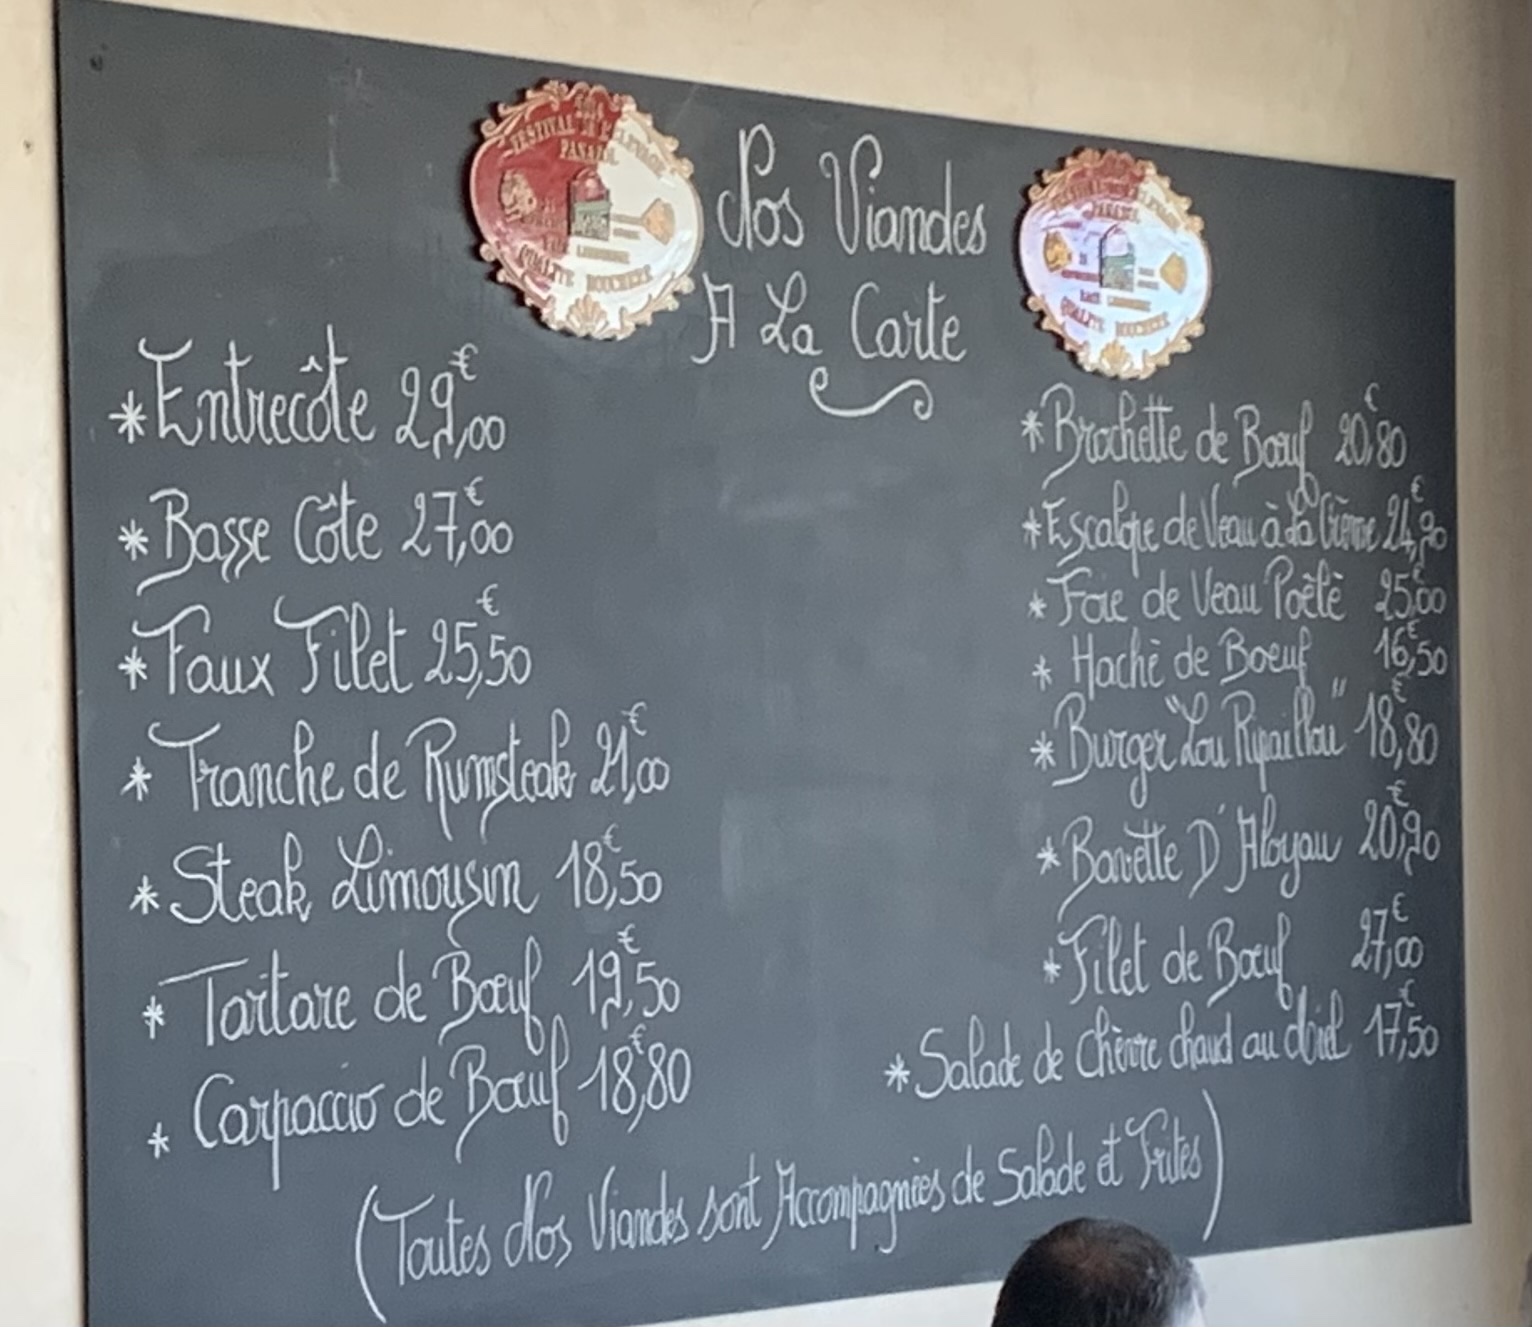 FESTIVAL DE L'ELEVAGE
PANAZOL
QUALITE BOUCHERE
Nos Viandes
A La Carte
FESTIVAL DE L'ELEVAGE
PANAZOL
RACE LIMOUSINE
QUALITE BOUCHERE
* Entrecôte 29,00 €
* Basse Côte 27,00 €
* Faux Filet 25,50 €
* Tranche de Rumsteak 21,00 €
* Steak Limousin 18,50 €
* Tartare de Bœuf 19,50 €
* Carpaccio de Bœuf 18,80 €
* Brochette de Bœuf 20,80 €
* Escalope de Veau à La Crème 24,90 €
* Foie de Veau Poêlè 25,00 €
* Hachè de Boeuf 16,50 €
* Burger "Lou Ripaillou" 18,80 €
* Bavette D'Aloyau 20,90 €
* Filet de Bœuf 27,00 €
* Salade de Chèvre chaud au Miel 17,50 €
(Toutes Nos Viandes sont Accompagnées de Salade et Frites)